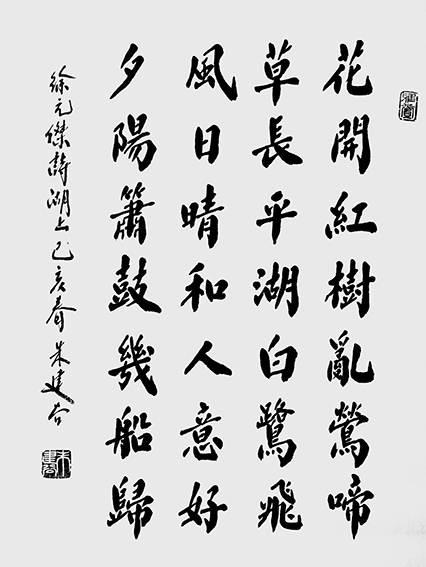 花開紅樹亂鶯啼
草長平湖白鷺飛
風日晴和人意好
夕陽簫鼓幾船歸
徐元傑詩湖上己亥春朱建